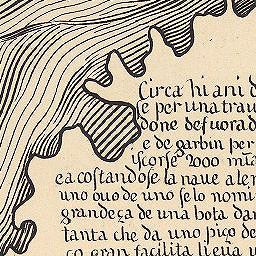 Circa hi ani d
se per una trau
done de fuora d
e de garbin per
iscorse 2000 mia
e acostandose la naue a ler
uno ouo de uno se lo nomi
grandeça de una bota da
tanta che da uno piço de
ço gran facilita lieua u